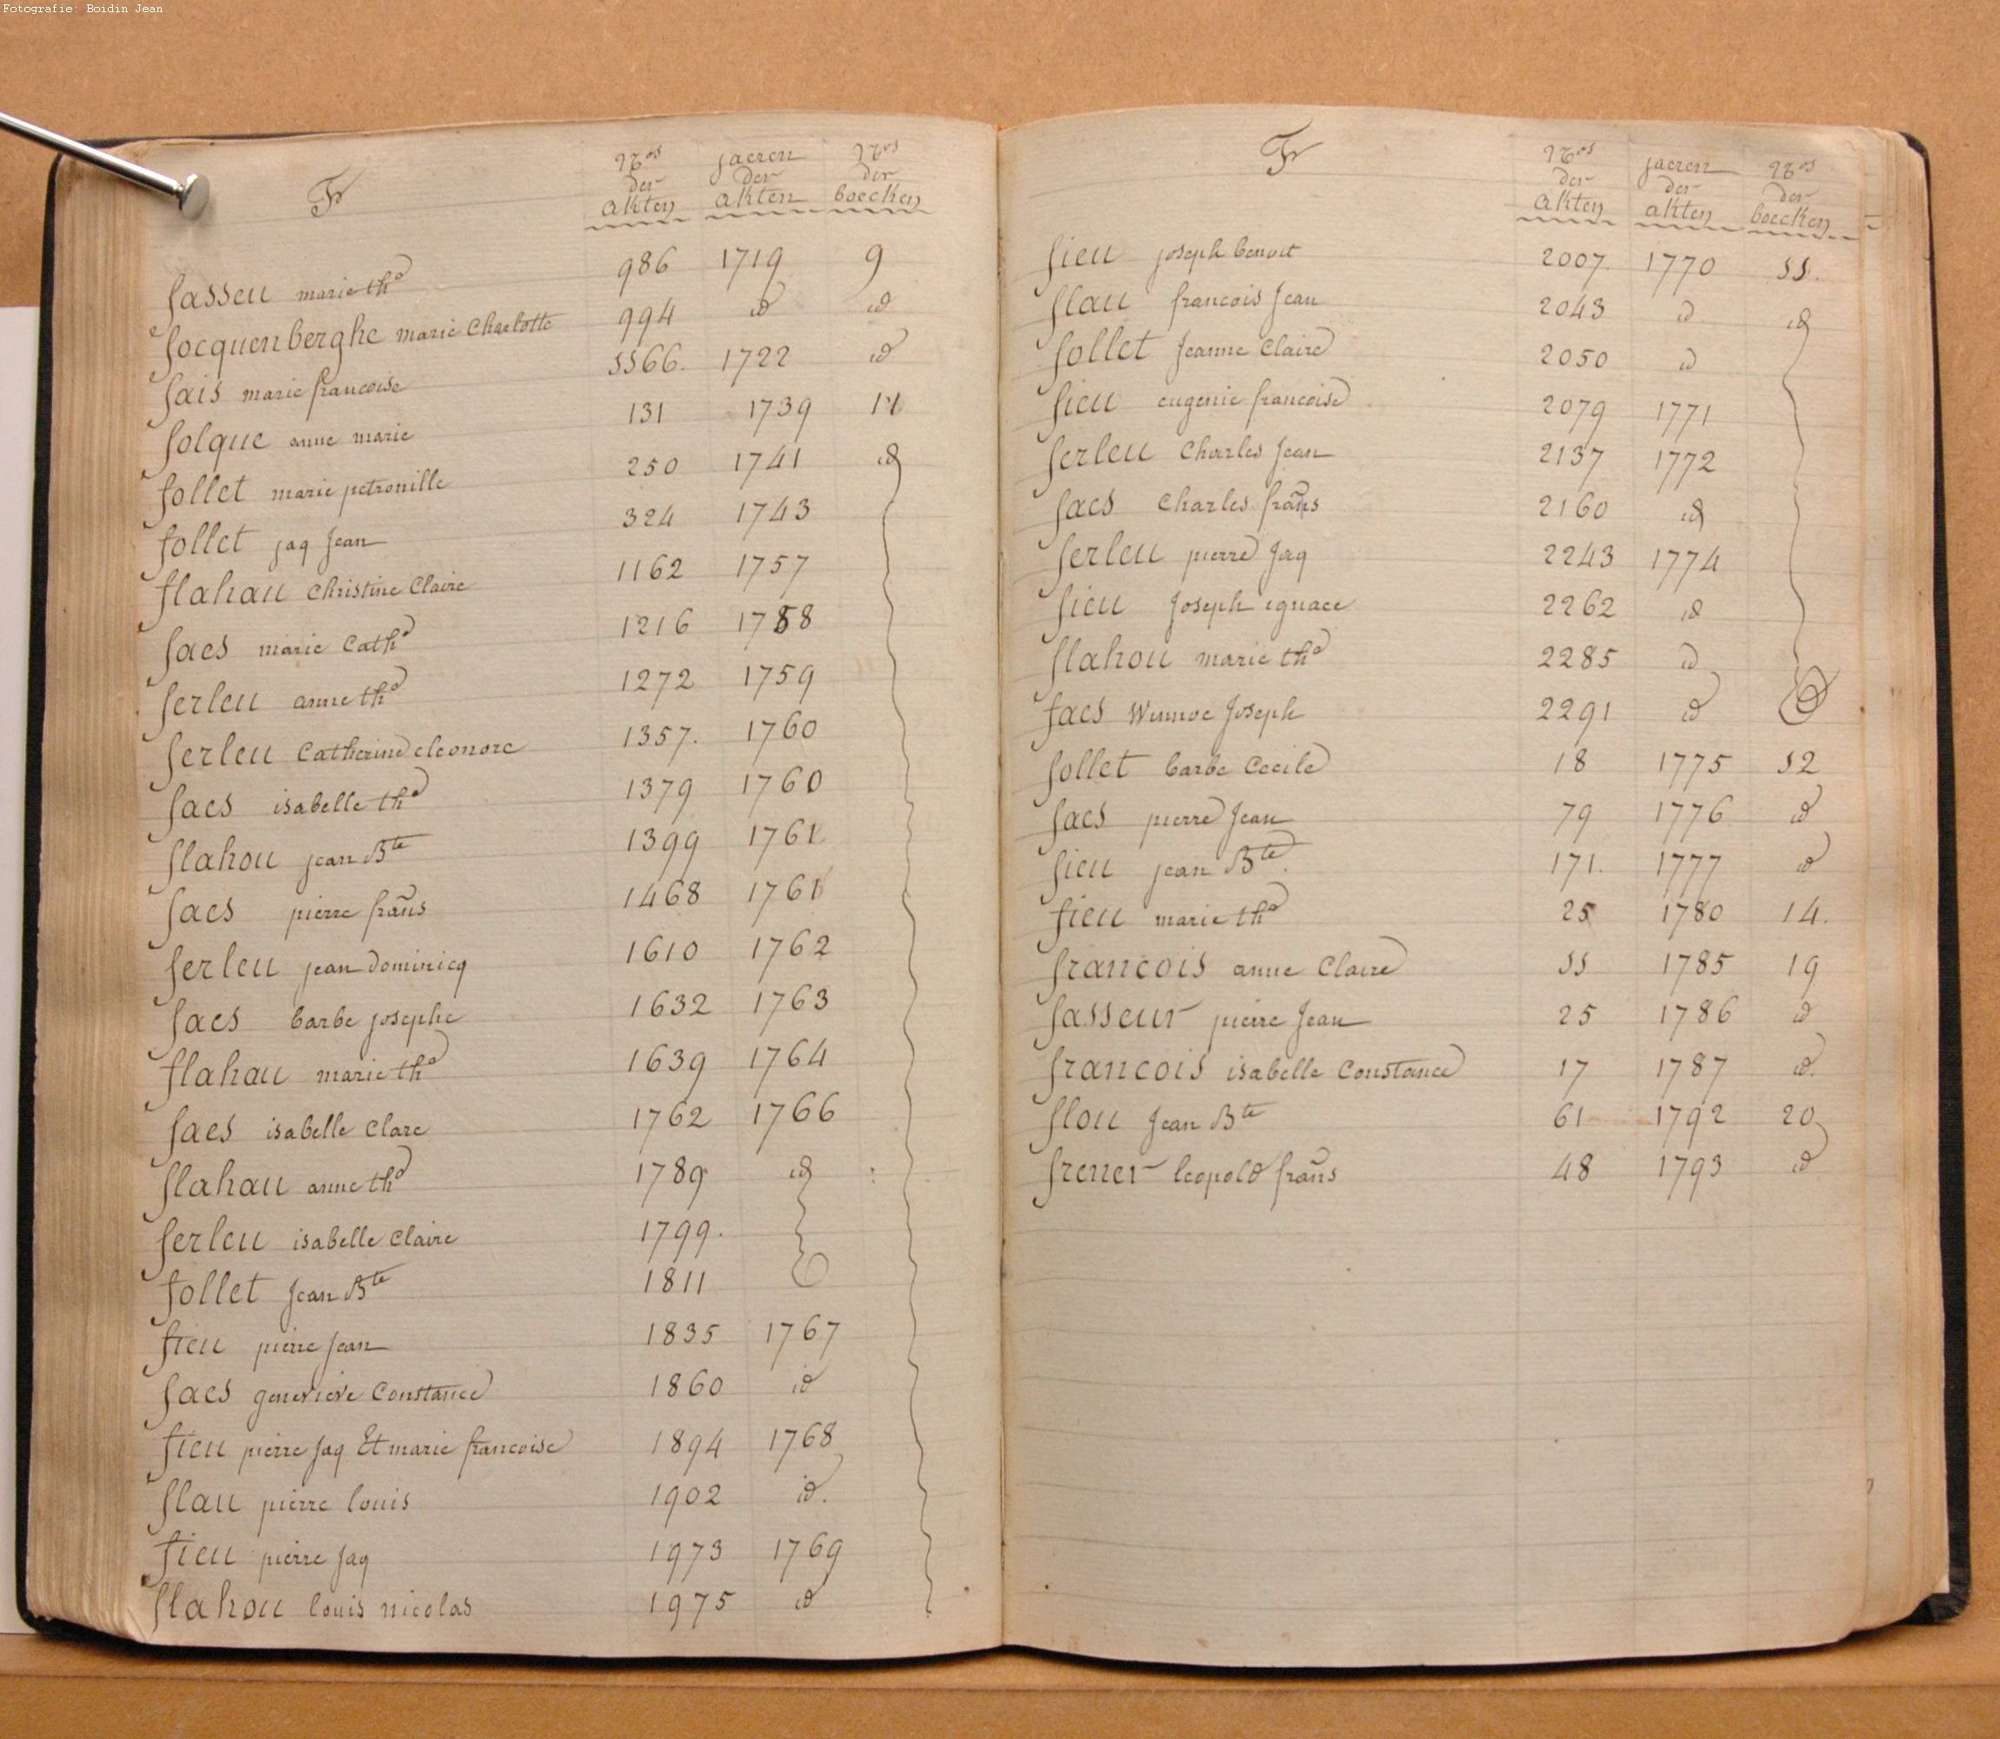 Fotografie: Boidin Jean
F
Nos der akten
jaeren der akten
Nos der boecken
fasseu marie the 986 1719 9
focquenberghe marie Charlotte 994 id id
fais marie francoise 5566. 1722 id
folque anne marie 131 1739 11
follet marie petronille 250 1741 id
follet jaq Jean 324 1743
flahau Christine Claire 1162 1757
faes marie Cathe 1216 1758
ferleu anne the 1272 1759
ferleu Catherine eleonore 1357. 1760
faes isabelle the 1379 1760
flahou jean Bte 1399 1761
faes pierre frans 1468 1761
ferleu jean Dominicq 1610 1762
faes barbe josephe 1632 1763
flahau marie the 1639 1764
faes isabelle Clare 1762 1766
flahau anne the 1789 id
ferleu isabelle Claire 1799.
follet Jean Bte 1811
fieu pierre Jean 1835 1767
faes genevieve Constance 1860 id
fieu pierre Jaq Et marie francoise 1894 1768
flau pierre louis 1902 id.
fieu pierre Jaq 1973 1769
flahou louis nicolas 1975 id
F
Nos der akten
jaeren der akten
Nos der boecken
fieu joseph benoit 2007. 1770 11.
flau francois Jean 2043 id id
follet Jeanne Claire 2050 id
fieu eugenie francoise 2079 1771
ferleu Charles Jean 2137 1772
faes Charles frans 2160 id
ferleu pierre Jaq 2243 1774
fieu Joseph ignace 2262 id
flahou marie the 2285 id
faes Winnoc Joseph 2291 id
follet barbe Cecile 18 1775 12
faes pierre Jean 79 1776 id
fieu jean Bte. 171. 1777 id
fieu marie the 25 1780 14.
francois anne Claire 11 1785 19
fasseur pierre Jean 25 1786 id
francois isabelle Constance 17 1787 id.
flou Jean Bte 61 1792 20
frener leopold frans 48 1793 id